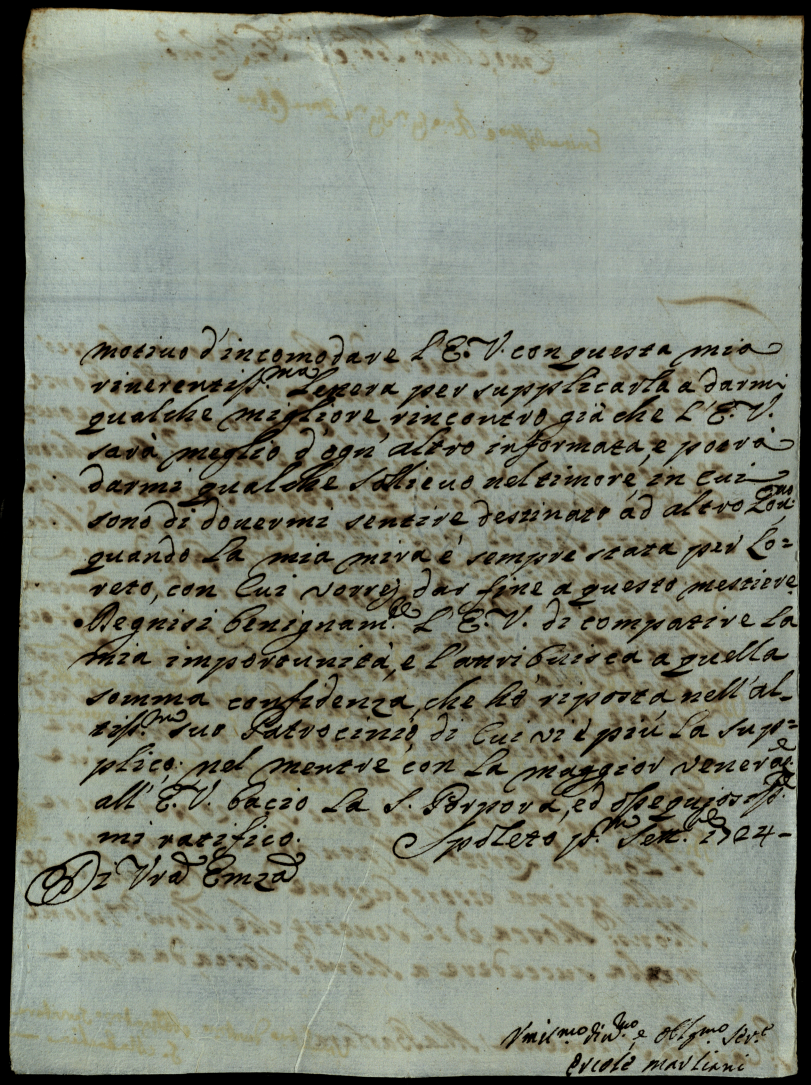 motiuo d'incomodare l'E.V. con questa mia
riuerentiss.ma Lettera per supplicarla a darmi
qualche migliore rincontro già che l'E.V.
sarà meglio d'ogn'altro informata, e potrà
darmi qualche sollieuo nel timore, in cui
sono di douermi sentire destinato ad altro Gou.no
quando la mia mira è sempre stata per Lo=
reto, con cui vorrej dar fine a questo mestiere.
Degnisi benignam.te l'E.V. di compatire la
mia importunità, e l'attribuisca a quella
somma confidenza, che hò riposta nell'al-
tiss.mo suo Patrocinio, di cui vi è più la sup=
plico; nel mentre con la maggior venerae
all'E.V. bacio la S. Porpora, ed ossequiosiss.te
mi ratifico. Spoleto p.mo Sett.e 1724-
Di Vrã Emzã
Vmil.mo diu.mo, e obblg.mo ser.e
Ercole Marliani